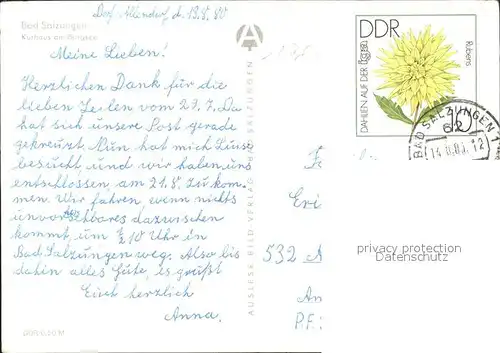 Bad Salzungen
Kurhaus am Burgsee
Dorf Allendorf d. 13.8.80
Meine Lieben!
Herzlichen Dank für die
lieben Zeilen vom 29.7. Da
hat sich unsere Post gerade
gekreuzt. Nun hat mich Luise
besucht und wir haben uns
entschlossen, am 21.8. zu kom-
men. Wir fahren, wenn nichts
unvorhersehbares dazwischen
kommt, um 1/2 10 Uhr in
Bad Salzungen weg. Also bis
dahin alles Gute, es grüßt
Euch herzlich
Anna.
AUSLESE BILD VERLAG BAD SALZUNGEN
DDR
DAHLIEN AUF DER
Rubens
BAD SALZUNGEN 1
62
14.8.80.12
Eri
532 A
An
P.F.
privacy protection
Datenschutz